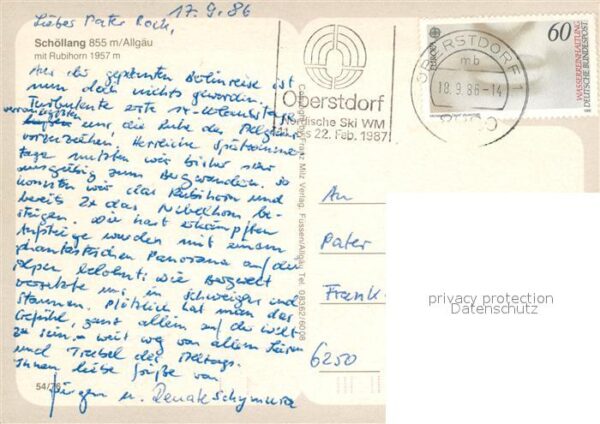 17.9.86
Liebes Pater Rock,
Schöllang 855 m/Allgäu
mit Rubihorn 1957 m
Aus der geplanten Berlinreise ist
nun doch nichts geworden.
Turbulente erste
veranlassten
uns, die Ruhe der Bergwelt
vorzuziehen. Herrliche Spätsommer-
tage nutzten wir bisher sehr
ausgiebig zum Bergwandern. So
konnten wir das Rubihorn und
bereits 2x das Nebelhorn be-
steigen. Die hart erkämpften
Aufstiege wurden mit einem
phantastischen Panorama auf die
Alpen belohnt: die Bergwelt
versetzte uns in Schweigen und
Staunen. Plötzlich hat man das
Gefühl, ganz allein auf der Welt
zu sein - weit weg von allem Lärm
und Trubel des Alltags.
Ihnen liebe Grüße von
Jürgen u. Renate Schymura
54/76
Oberstdorf
Nordische Ski WM
bis 22. Feb. 1987
OBERSTDORF 1
mb
18.9.86-14
60
EUROPA
WASSERREINHALTUNG
DEUTSCHE BUNDESPOST
Copyright by Franz Milz Verlag, Füssen/Allgäu, Tel. 08362/6008
An
Pater
Frank
6250
privacy protection
Datenschutz